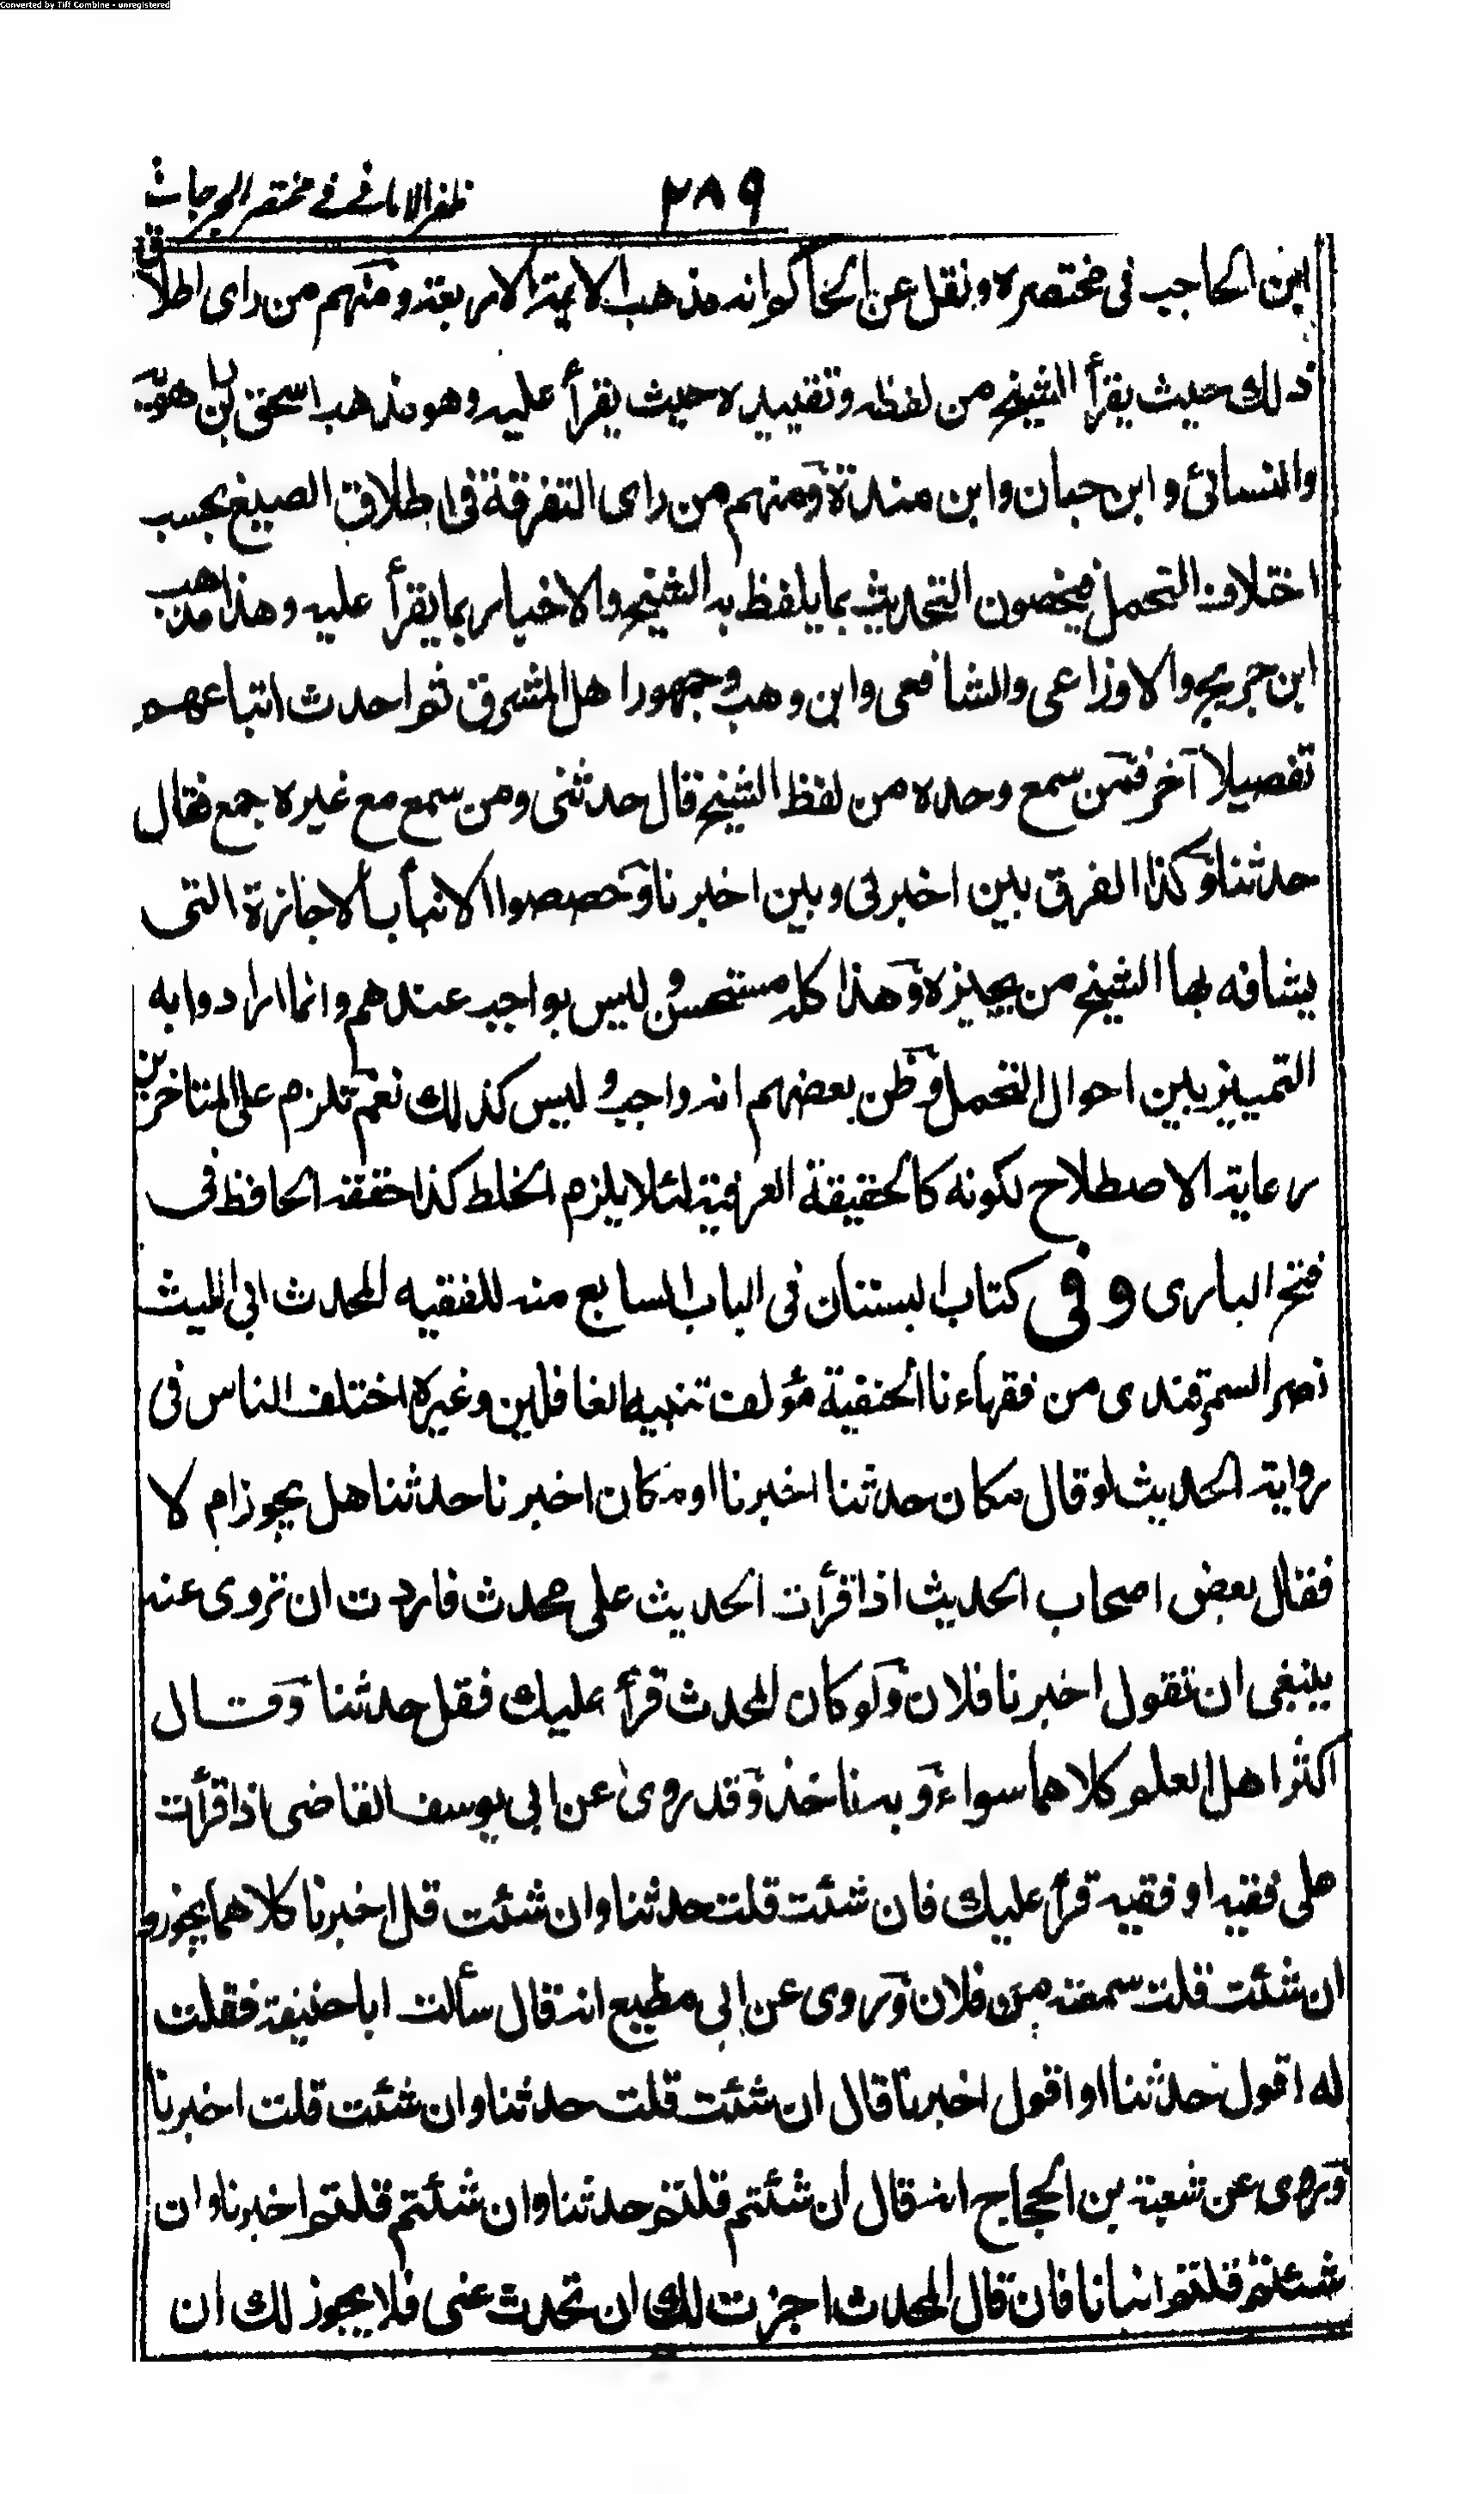 Converted by Tiff Combine - unregistered
٢٨٩ ظفر الامانے فے مختصر الجرجانے
ابن الحاجب فی مختصره ونقل عن الحاکم انه مذهب الایمة الاربعة ومنهم من رای اطلاق
ذلك حیث یقرأ الشیخ من لفظه وتقییده حیث یقرأ علیه وهو مذهب اسحق بن راهویه
والنسائی وابن حبان وابن مندة ومنهم من رای التفرقة فی اطلاق الصیغ بحسب
اختلاف التحمل فیخصون التحدیث بما یلفظ به الشیخ والاخبار بما یقرأ علیه وهذا مذهب
ابن جریج والاوزاعی والشافعی وابن وهب وجمهور اهل المشرق ثم احدث اتباعهم
تفصیلا آخر فمن سمع وحده من لفظ الشیخ قال حدثنی ومن سمع مع غیره جمع فقال
حدثنا وکذا الفرق بین اخبرنی وبین اخبرنا وخصصوا الانباء بالاجازة التی
یشافه بها الشیخ من یجیزه وهذا کله مستحسن ولیس بواجب عندهم وانما ارادوا به
التمییز بین احوال التحمل وظن بعضهم انه واجب ولیس کذلك نعم تلزم علی المتاخرین
رعایة الاصطلاح لکونه کالحقیقة العرفیة لئلا یلزم الخلط کذا حققه الحافظ فی
فتح الباری وفی کتاب البستان فی الباب السابع منه للفقیه المحدث ابی اللیث
نصر السمرقندی من فقهاءنا الحنفیة مؤلف تنبیه الغافلین وغیره اختلف الناس فی
روایة الحدیث لو قال مکان حدثنا اخبرنا او مکان اخبرنا حدثنا هل یجوز ام لا
فقال بعض اصحاب الحدیث اذا قرأت الحدیث علی محدث فاردت ان تروی عنه
ینبغی ان تقول اخبرنا فلان ولو کان المحدث قرأ علیك فقل حدثنا وقال
اکثر اهل العلم کلاهما سواء وبه ناخذ وقد روی عن ابی یوسف القاضی اذا قرأت
علی فقیه او فقیه قرأ علیك فان شئت قلت حدثنا وان شئت قل اخبرنا کلاهما یجوز و
ان شئت قلت سمعته من فلان وروی عن ابی مطیع انه قال سألت ابا حنیفة فقلت
له اقول حدثنا او اقول اخبرنا قال ان شئت قلت حدثنا وان شئت قلت اخبرنا
وروی عن شعبة بن الحجاج انه قال ان شئتم قلتم حدثنا وان شئتم قلتم اخبرنا وان
شئتم قلتم انبانا فان قال المحدث اجزت لك ان تحدث عنی فلا یجوز لك ان